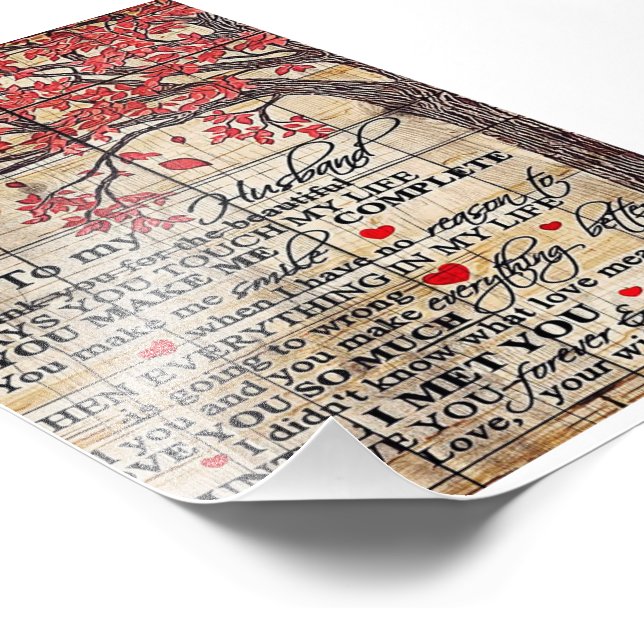 To my Husband
you for the beautiful
YOU TOUCH MY LIFE
YOU MAKE ME COMPLETE
You make me smile
when I have no reason to
HEN EVERYTHING IN MY LIFE
is going to wrong
you and you make everything bette
VE YOU SO MUCH
I didn't know what love mea
I MET YOU
E YOU forever &
Love, your wi